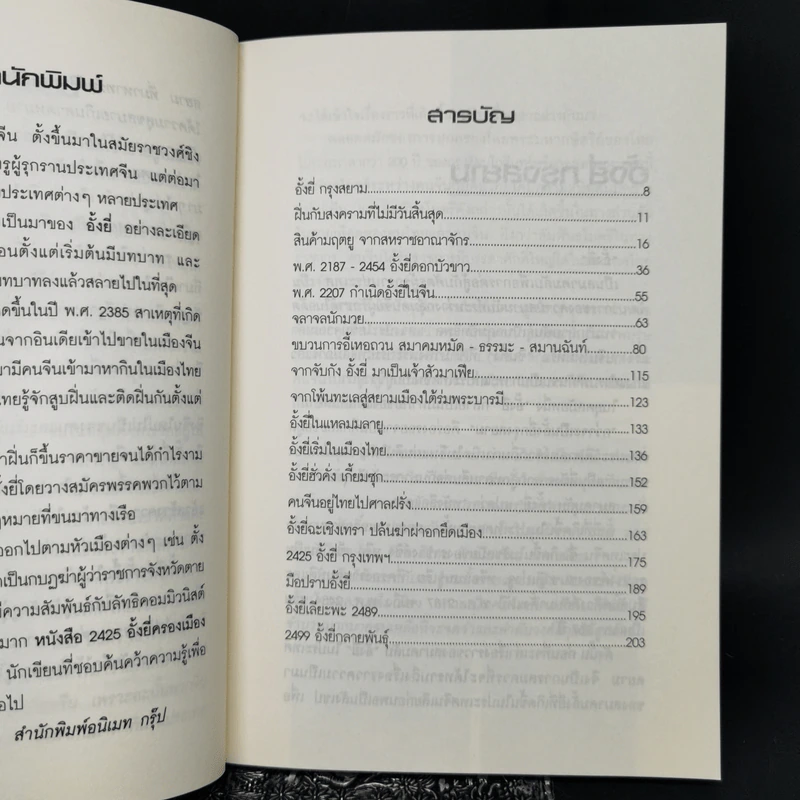 นักพิมพ์
จีน ตั้งขึ้นมาในสมัยราชวงศ์ชิง
รูผู้รุกรานประเทศจีน แต่ต่อมา
งประเทศต่างๆ หลายประเทศ
เป็นมาของ อั้งยี่ อย่างละเอียด
อนตั้งแต่เริ่มต้นมีบทบาท และ
บทบาทลงแล้วสลายไปในที่สุด
ดขึ้นในปี พ.ศ. 2385 สาเหตุที่เกิด
นจากอินเดียเข้าไปขายในเมืองจีน
ามีคนจีนเข้ามาหากินในเมืองไทย
ทยรู้จักสูบฝิ่นและติดฝิ่นกันตั้งแต่
าฝิ่นก็ขึ้นราคาขายจนได้กำไรงาม
ั้งยี่โดยวางสมัครพรรคพวกไว้ตาม
ฎหมายที่ขนมาทางเรือ
ออกไปตามหัวเมืองต่างๆ เช่น ตั้ง
าเป็นกบฏฆ่าผู้ว่าราชการจังหวัดตาย
ีความสัมพันธ์กับลัทธิคอมมิวนิสต์
มาก หนังสือ 2425 อั้งยี่ครองเมือง
นักเขียนที่ชอบค้นคว้าความรู้เพื่อ
อไป
สำนักพิมพ์อนิเมท กรุ๊ป
สารบัญ
อั้งยี่ กรุงสยาม 8
ฝิ่นกับสงครามที่ไม่มีวันสิ้นสุด 11
สินค้ามฤตยู จากสหราชอาณาจักร 16
พ.ศ. 2187 - 2454 อั้งยี่ดอกบัวขาว 36
พ.ศ. 2207 กำเนิดอั้งยี่ในจีน 55
จลาจลนักมวย 63
ขบวนการอี้เหอถวน สมาคมหมัด - ธรรมะ - สมานฉันท์ 80
จากจับกัง อั้งยี่ มาเป็นเจ้าสัวมาเฟีย 115
จากโพ้นทะเลสู่สยามเมืองใต้ร่มพระบารมี 123
อั้งยี่ในแหลมมลายู 133
อั้งยี่เริ่มในเมืองไทย 136
อั้งยี่ฮั่วคั่ง เกี้ยมซุก 152
คนจีนอยู่ไทยไปศาลฝรั่ง 159
อั้งยี่ฉะเชิงเทรา ปล้นฆ่าผ่าอกยึดเมือง 163
2425 อั้งยี่ กรุงเทพฯ 175
มือปราบอั้งยี่ 189
อั้งยี่เลียะพะ 2489 195
2499 อั้งยี่กลายพันธุ์ 203